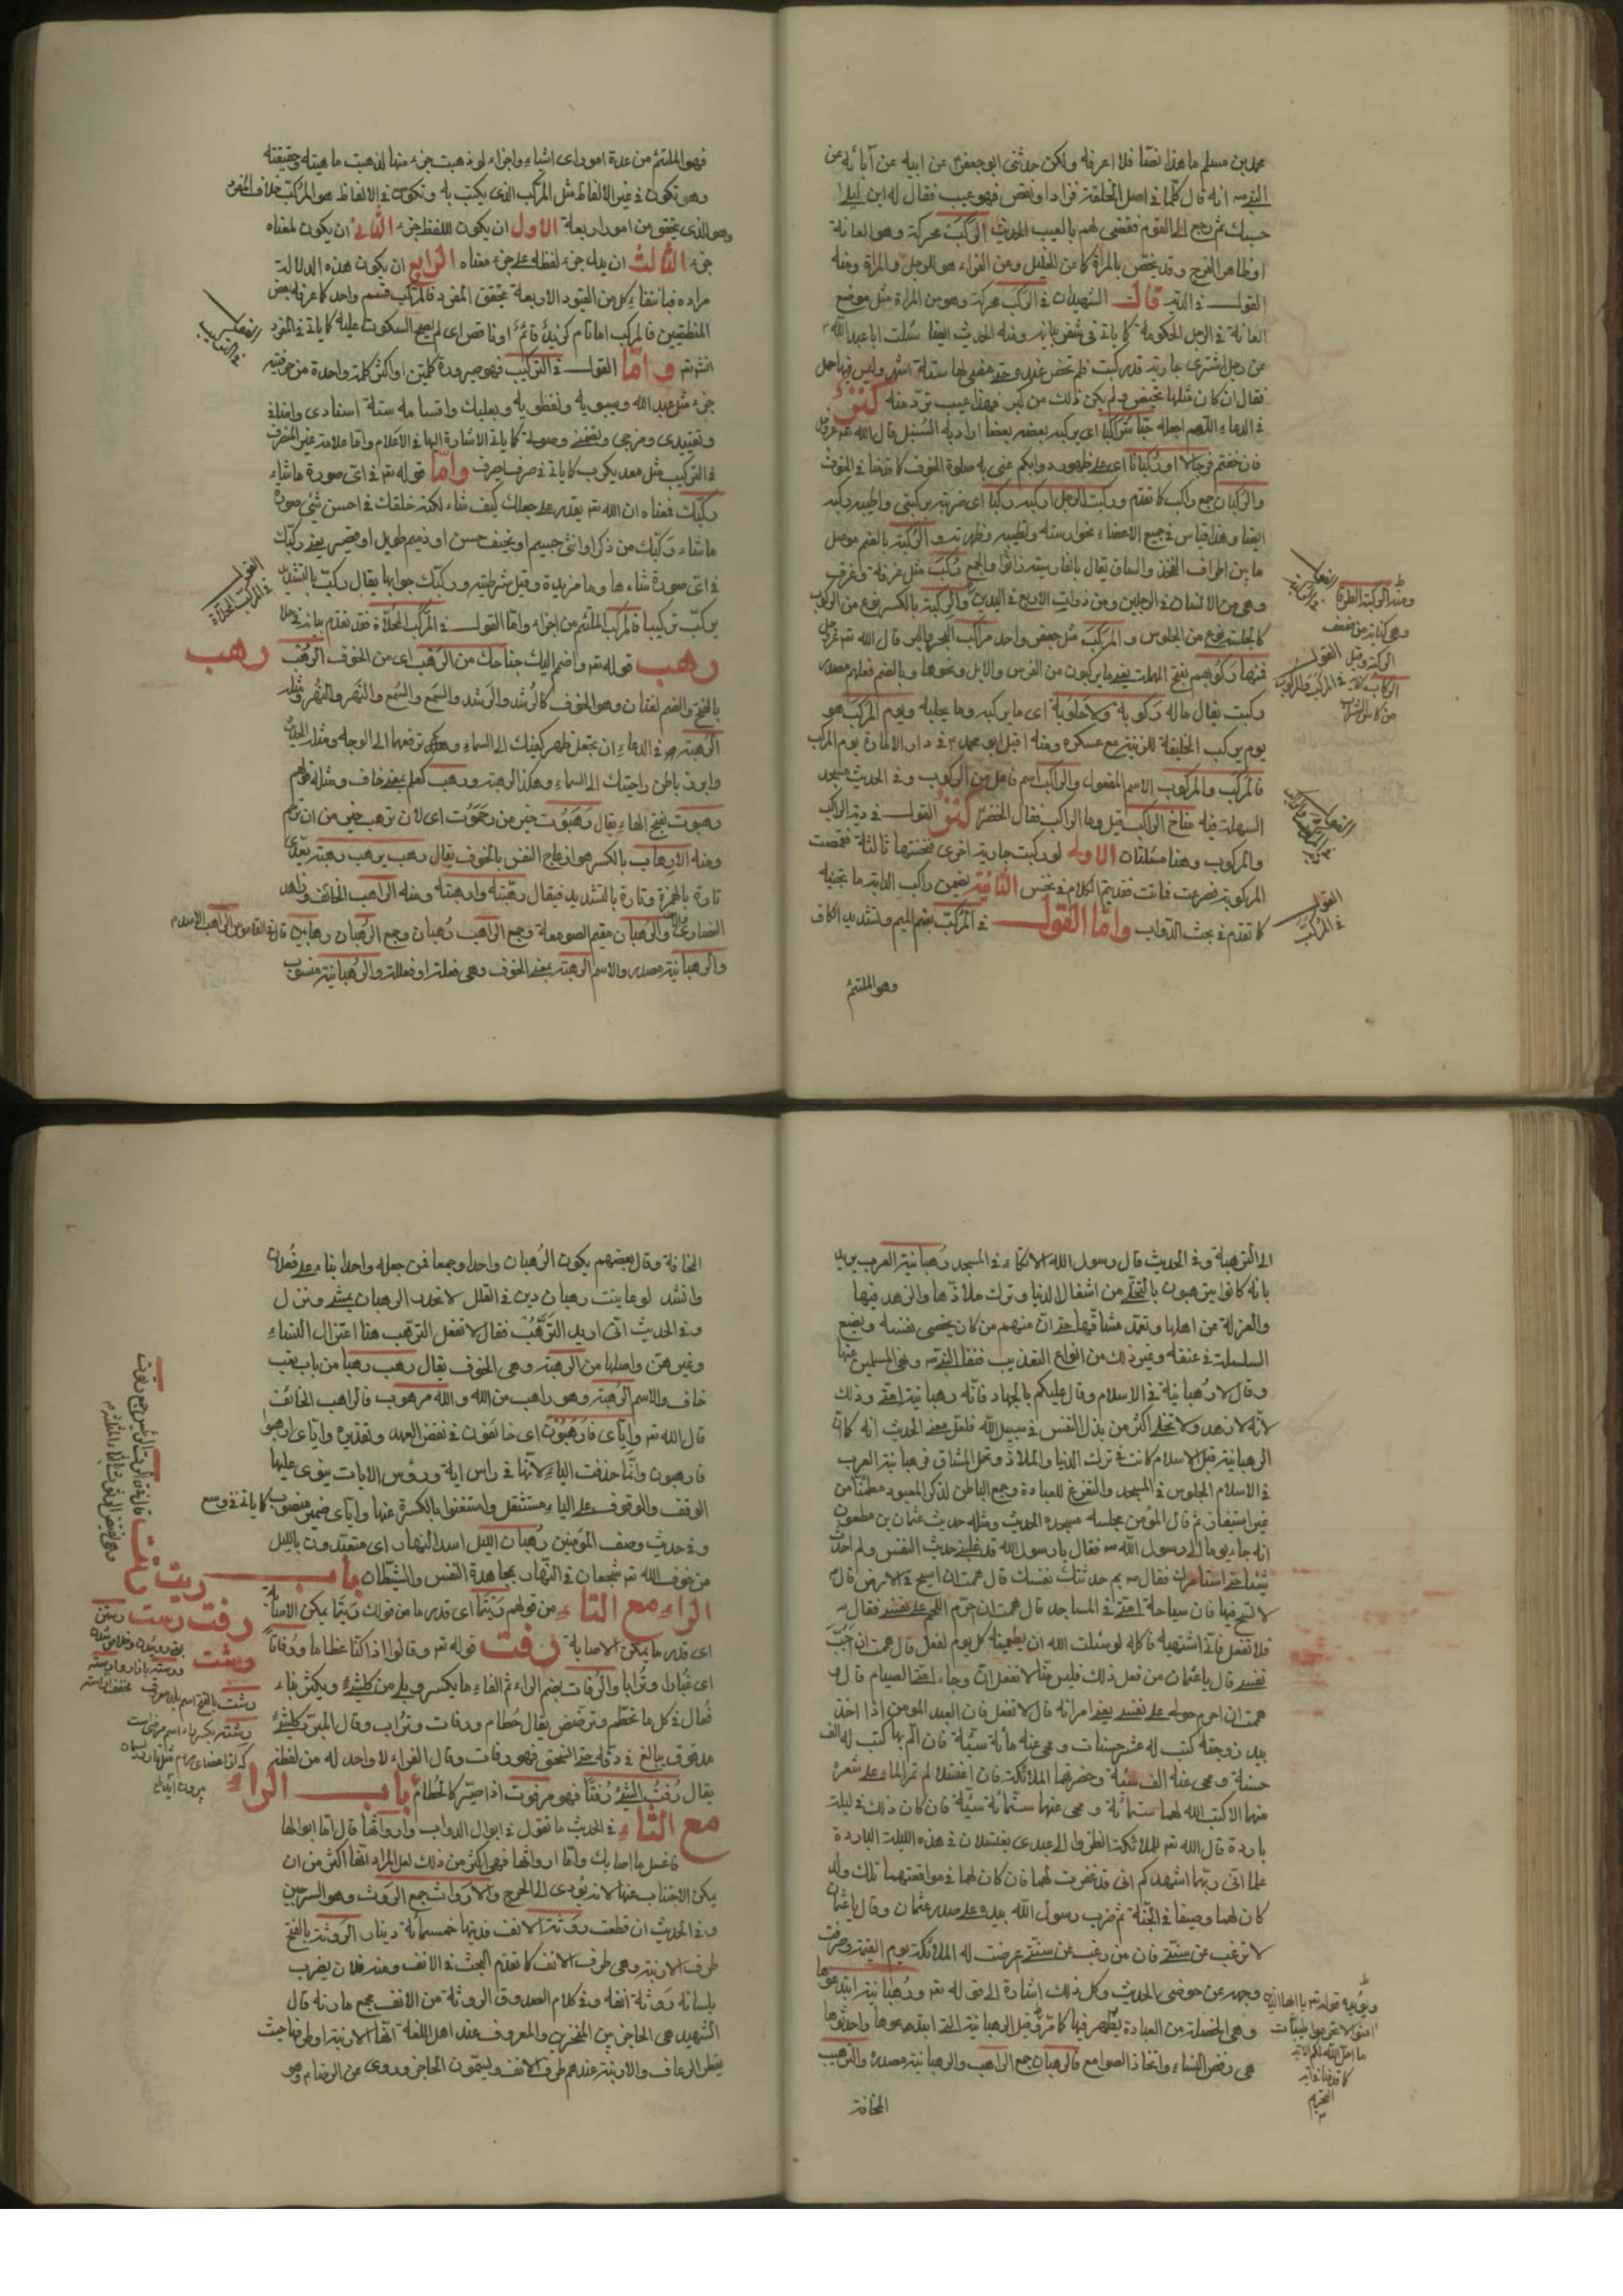 محمد بن مسلم ما هذا نصا فلا اعرفه ولكن حدثنى ابو جعفر عن ابيه عن آبائه عن
انه قال كلما فى اصل الخلقة فزاد او نقص فهو عيب فقال له ابن ليلى
حسبك ثم رجع الى القوم فقضى لهم بالعيب الحديث الركب محركة وهو العانة
او ظاهر الفرج وقد يختص بالمرأة كما عن الخليل وعن الفراء هو للرجل والمراة ومنه
القول فى الدية قال الشهيدان فى الركب محركة وهو من المراة مثل موضع
العانة فى الرجل الحكومة كما ياتى فى شفر بيانه ومنه الحديث ايضا سئلت ابا عبد الله
عن رجل اشترى جارية قد ركبت فلم تحض عنده حتى مضى لها ستة اشهر وليس فيها حمل
فقال ان كان مثلها تحيض ولم يكن ذلك من كبر فهذا عيب ترد منه كنز
فى الدعاء اللهم اجعله حبا متراكبا اى يركب بعضه بعضا اراد به السنبل قال الله
فان خفتم فرجالا او ركبانا اى على ظهور دوابكم عنى به صلوة الخوف كما قدمنا فى الخوف
والركبان جمع راكب كما تقدم وركبت الرجل اركبه ركبا اى ضربته بركبتى
ايضا وهذا قياس فى جميع الاعضاء نحو راسته والركبة بالضم موصل
ما بين اطراف الفخذ والساق يقال بالفارسية زانو والجمع ركب مثل غرفة وغرف
وهى من الانسان فى الرجلين ومن ذوات الاربع فى اليدين والركبة بالكسر نوع من الركوب
كالجلسة نوع من الجلوس والمركب مثل جعفر واحد مراكب البحر والبر قال الله
فمنها ركوبهم بفتح المهملة يعنى ما يركبون من الفرس والابل ونحوها وبالضم فعلهم مصدر
ركبت يقال ماله ركوبة ولا حلوبة اى ما يركبه وما يحلبه ويوم المركب هو
يوم يركب الخليفة للزينة مع عسكره ومنه اقبل ابو محمد فى دار الامارة يوم المركب
فالمركب والمركوب الاسم المفعول والراكب اسم فاعل من الركوب وفى الحديث مسجد
السهلة فيه مناخ الراكب قيل وما الراكب فقال الخضر كنز القول فى دية الراكب
والمركوب وهنا مسئلتان الاولى لو ركبت جارية اخرى فنخستها ثالثة فقمصت
المركوبة فصرعت فماتت فقد يتم الكلام فى نخس الثانية يضمن راكب الدابة ما تجنيه
كما تقدم فى بحث الدواب واما القول فى المركب بضم الميم وتشديد الكاف
وهو الملتئم
القول
فى المركب
فهو الملتئم من عدة امور اى اشياء واجزاء لو ذهبت جزء منها لذهبت ماهيته وحقيقته
وهو تكون فى غير الالفاظ مثل المركب الذى يكتب به وتكون فى الالفاظ هو المركب خلاف المفرد
وهو الذى يتحقق من امور اربعة الاول ان يكون للفظ جزء الثانى ان يكون لمعناه
جزء الثالث ان يدل جزء لفظه على جزء معناه الرابع ان يكون هذه الدلالة
مرادة فبانتفاء كل من القيود الاربعة يتحقق المفرد فالمركب قسم واحد كما عرفه بعض
المنطقيين فالمركب اما تام كزيد قائم او ناقص اى لم يصح السكوت عليه كما ياتى فى المفرد
واما القول فى التركيب فهو صيرورة كلمتين او اكثر كلمة واحدة من حرفية
جزء مثل عبد الله وسيبويه ونفطويه وبعلبك واقسامه ستة اسنادى واضافى
وتقييدى ومزجى وتضمنى وصوتى كما ياتى الاشارة اليها فى الاعلام واما علامة غير المنصرف
فى التركيب مثل معديكرب كما ياتى فى صرف واما قوله فى اى صورة ماشاء
ركبك فمعناه ان الله يقدر على جعلك كيف شاء لكنه خلقك فى احسن شئ صورة
ما شاء ركبك من ذكر او انثى جسيم او نحيف حسن او ذميم طويل او قصير يعنى ركبك
فى اى صورة شاءها وما مزيدة وقيل شرطية وركبك جوابها يقال ركب بالتشديد
يركب تركيبا فالمركب الملتئم من اجزاء واما القول فى المركب المحلاة فقد تقدم بيانه
رهب قوله واضمم اليك جناحك من الرهب اى من الخوف الرهب
بالفتح والضم لغتان وهو الخوف كالرشد والرشد والسمع والسمع والنهر والنهر
الرهبة هو فى الدعاء ان تجعل ظهر كفيك الى السماء وترفعهما الى الوجه
وابرز باطن راحتيك الى السماء وهكذا الرهبة ورهب كعلم بمعنى خاف ومثله
رهبوت بفتح الهاء يقال رهبوت خير من رحموت اى لان ترهب خير من ان ترحم
ومنه الارهاب بالكسر هو ازعاج النفس بالخوف يقال رهب يرهب رهبة يتعدى
تارة بالهمزة وتارة بالتشديد فيقال رهبته وارهبته ومنه الراهب الخائف وزاهد
النصارى والرهبان مقيم الصومعة وجمع الراهب رهبان وجمع الرهبان رهابين
والرهبانية مصدر والاسم الرهبة بمعنى الخوف وهى فعلنة او فعللة والرهبانية منسوب
القول
فى المركب المحلاة
رهب
الى الرهبة وفى الحديث قال رسول الله الاتكاء فى المسجد رهبانية العرب يريد
بانه كانوا يترهبون بالتخلى من اشغال الدنيا وترك ملاذها والزهد فيها
والعزلة من اهلها وتعمد مشاقها حتى ان منهم من كان يخصى نفسه ويضع
السلسلة فى عنقه وغير ذلك من انواع التعذيب ونهى المسلمين عنها
وقال لا رهبانية فى الاسلام وقال عليكم بالجهاد فانه رهبانية امتى وذلك
لانه لا زهد ولا تخلى اكثر من بذل النفس فى سبيل الله فلعل معنى الحديث انه كان
الرهبانية قبل الاسلام كانت فى ترك الدنيا والملاذ وتحمل المشاق فرهبانية العرب
فى الاسلام الجلوس فى المسجد والتفرغ للعبادة وجمع الباطن لذكر المعبود مطمئنا من
غير استيفاز ثم قال المؤمن مجلسه مسجده الحديث ومثله حديث عثمان بن مظعون
انه جاء يوما الى رسول الله فقال يا رسول الله قد غلبنى حديث النفس ولم احدث
شيئا حتى استامرك فقال بم حدثتك نفسك قال هممت ان اسيح فى الارض قال
لا تسح فيها فان سياحة امتى فى المساجد قال هممت ان احرم اللحم على نفسى فقال
فلا تفعل فانى اشتهيه فاكله لو سئلت الله ان يطعمنيه كل يوم لفعل قال هممت ان اجب
نفسى قال يا عثمان من فعل ذلك فليس منا لا تفعل ان وجاء امتى الصيام قال و
هممت ان احرم خولة على نفسى يعنى امراته قال لا تفعل فان العبد المؤمن اذا اخذ
بيد زوجته كتب له عشر حسنات ومحى عنه مائة سيئة فان الم بها كتب له الف
حسنة ومحى عنه الف سيئة وحضرتهما الملائكة فان اغتسلا لم تمر الماء على شعرة
منهما الا كتب الله لهما ستمائة ومحى عنهما ستمائة سيئة فان كان ذلك فى ليلة
باردة قال الله للملائكة انظروا الى عبدى يغتسلان فى هذه الليلة الباردة
علما انى ربهما اشهدكم انى قد غفرت لهما فان كان لهما فى مواقعتهما تلك ولد
كان لهما وصيفا فى الجنة ثم ضرب رسول الله بيده على صدر عثمان وقال يا عثمان
لا ترغب عن سنتى فان من رغب عن سنتى عرضت له الملائكة يوم القيمة وصرفت
وجهه عن حوضى الحديث وكل ذلك اشارة الى قوله ورهبانية ابتدعوها
وهى الخصلة من العبادة يظهر فيها كما مر وقيل الرهبانية التى ابتدعوها واحدثوها
هى رفض النساء واتخاذ الصوامع فالرهبان جمع الراهب والرهبانية مصدره والترهيب
المخافة
المخافة وقال بعضهم يكون الرهبان واحدا وجمعا فمن جعله واحدا بناه على فعلان
وانشد لو عاينت رهبان دير فى القلل لانحدر الرهبان يمشى ونزل
وفى الحديث انى اريد الترهب فقال لا تفعل الترهب هنا اعتزال النساء
وغيرهن واصلها من الرهبة وهى الخوف يقال رهب رهبا من باب تعب
خاف والاسم الرهبة وهو راهب من الله والله مرهوب فالراهب الخائف
قال الله واياى فارهبون اى خافون فى نقض العهد وتقديره واياى ارهبوا
فارهبون وانما حذفت الياء لانها فى راس اية ورؤس الايات ينوى عليها
الوقف والوقوف على الياء مستثقل واستغنوا بالكسرة عنها واياى ضمير منصوب كما ياتى
وفى حديث وصف المؤمنين رهبان الليل اسد النهار اى متعبدون بالليل
من خوف الله شجعان فى النهار بمجاهدة النفس والشيطان باب
الراء مع التاء
اى قدر ما يمكن الاصابة رفت قوله وقالوا ائذا كنا عظاما ورفاتا
اى غبارا وترابا والرفات بضم الراء ثم الفاء ما يكسر وبلى من كل شئ ويكثر بناء
فعال فى كل ما تحطم وترضض يقال حطام ورفات وتراب وقال المبرد كل شئ
مدقوق يبالغ فى دقه حتى انسحق فهو رفات وقال الفراء لا واحد له من لفظه
يقال رفت الشئ رفتا فهو مرفوت اذا صير كالحطام باب الراء
مع الثاء فى الحديث ما تقول فى ابوال الدواب وارواثها قال اما ابوالها
فاغسل ما اصابك واما ارواثها فهى اكثر من ذلك لعل المراد انها اكثر من ان
يمكن الاجتناب عنها لانه يؤدى الى الحرج والارواث جمع الروث وهو السرجين
وفى الحديث ان قطعت روثة الانف فديتها خمسمائة دينار الروثة بالفتح
طرف الارنبة وهى طرف الانف كما تقدم البحث فى الانف ومنه فلان يضرب
بلسانه روثة انفه وفى كلام الصدوق الروثة من الانف مجمع مارنه قال
الشهيد هى الحاجز بين المنخرين والمعروف عند اهل اللغة انها الارنبة او طرفها حيث
يقطر الرعاف والارنبة عندهم طرف الانف ويسمون الحاجز وروى عن الرضا وهو
ريت
رفت رست
رشت